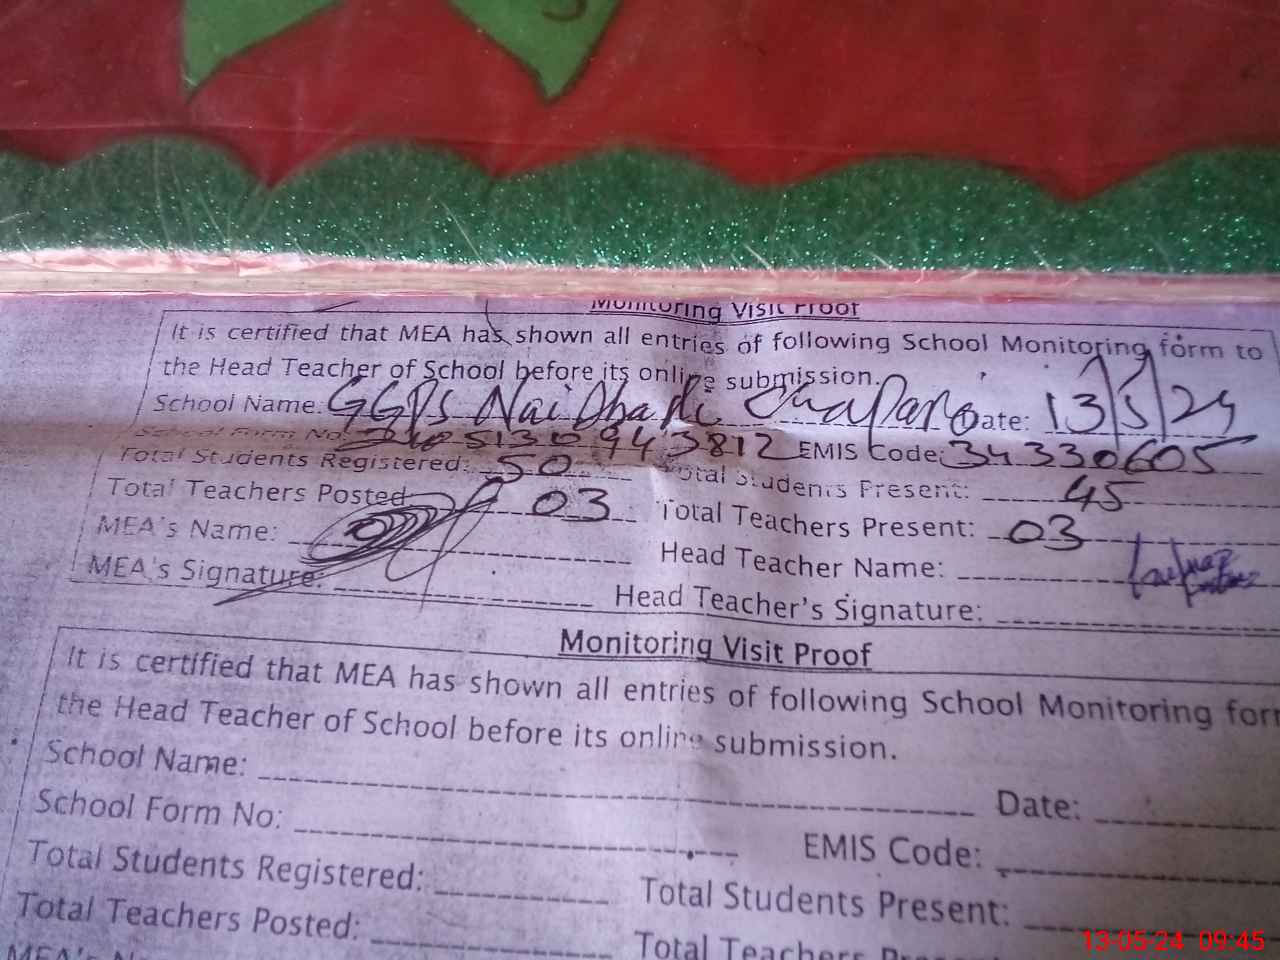 Monitoring Visit Proof
It is certified that MEA has shown all entries of following School Monitoring form to
the Head Teacher of School before its online submission.
School Name: GGPS Nai Dhari Chapar Date: 13/5/24
School Form No: 2405130943812 EMIS Code: 34330605
Total Students Registered: 50 Total Students Present: 45
Total Teachers Posted 03 Total Teachers Present: 03
MEA's Name: Head Teacher Name:
MEA's Signature: Head Teacher's Signature:
Monitoring Visit Proof
It is certified that MEA has shown all entries of following School Monitoring for
the Head Teacher of School before its online submission.
School Name: Date:
School Form No: EMIS Code:
Total Students Registered: Total Students Present:
Total Teachers Posted: Total Teachers Pres
MEA's
13-05-24 09:45